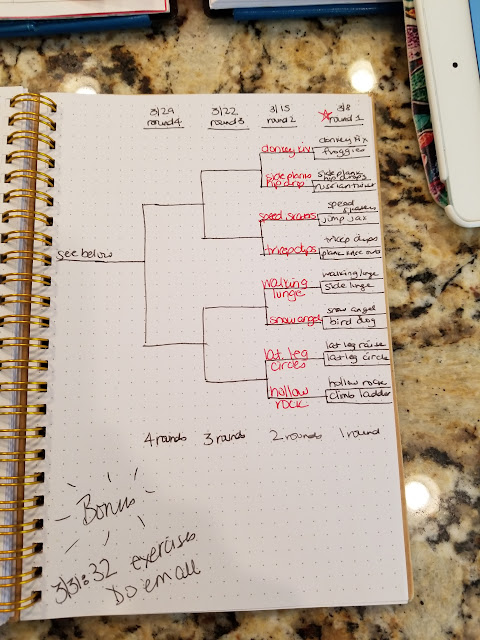 3/29 3/22 3/15 3/8
round 4 round 3 round 2 round 1
donkey kix
donkey kix
froggies
side plank
hip drop
side plank
hip drops
russian twist
speed skaters
speed
skaters
jump jax
tricep dips
tricep dips
plank knee outs
see below
walking
lunge
walking lunge
side lunge
snow angel
snow angel
bird dog
lat. leg
circles
lat leg raise
lat leg circle
hollow
rock
hollow rock
climb ladder
4 rounds 3 rounds 2 rounds 1 round
Bonus
3/31: 32 exercises
Do em all